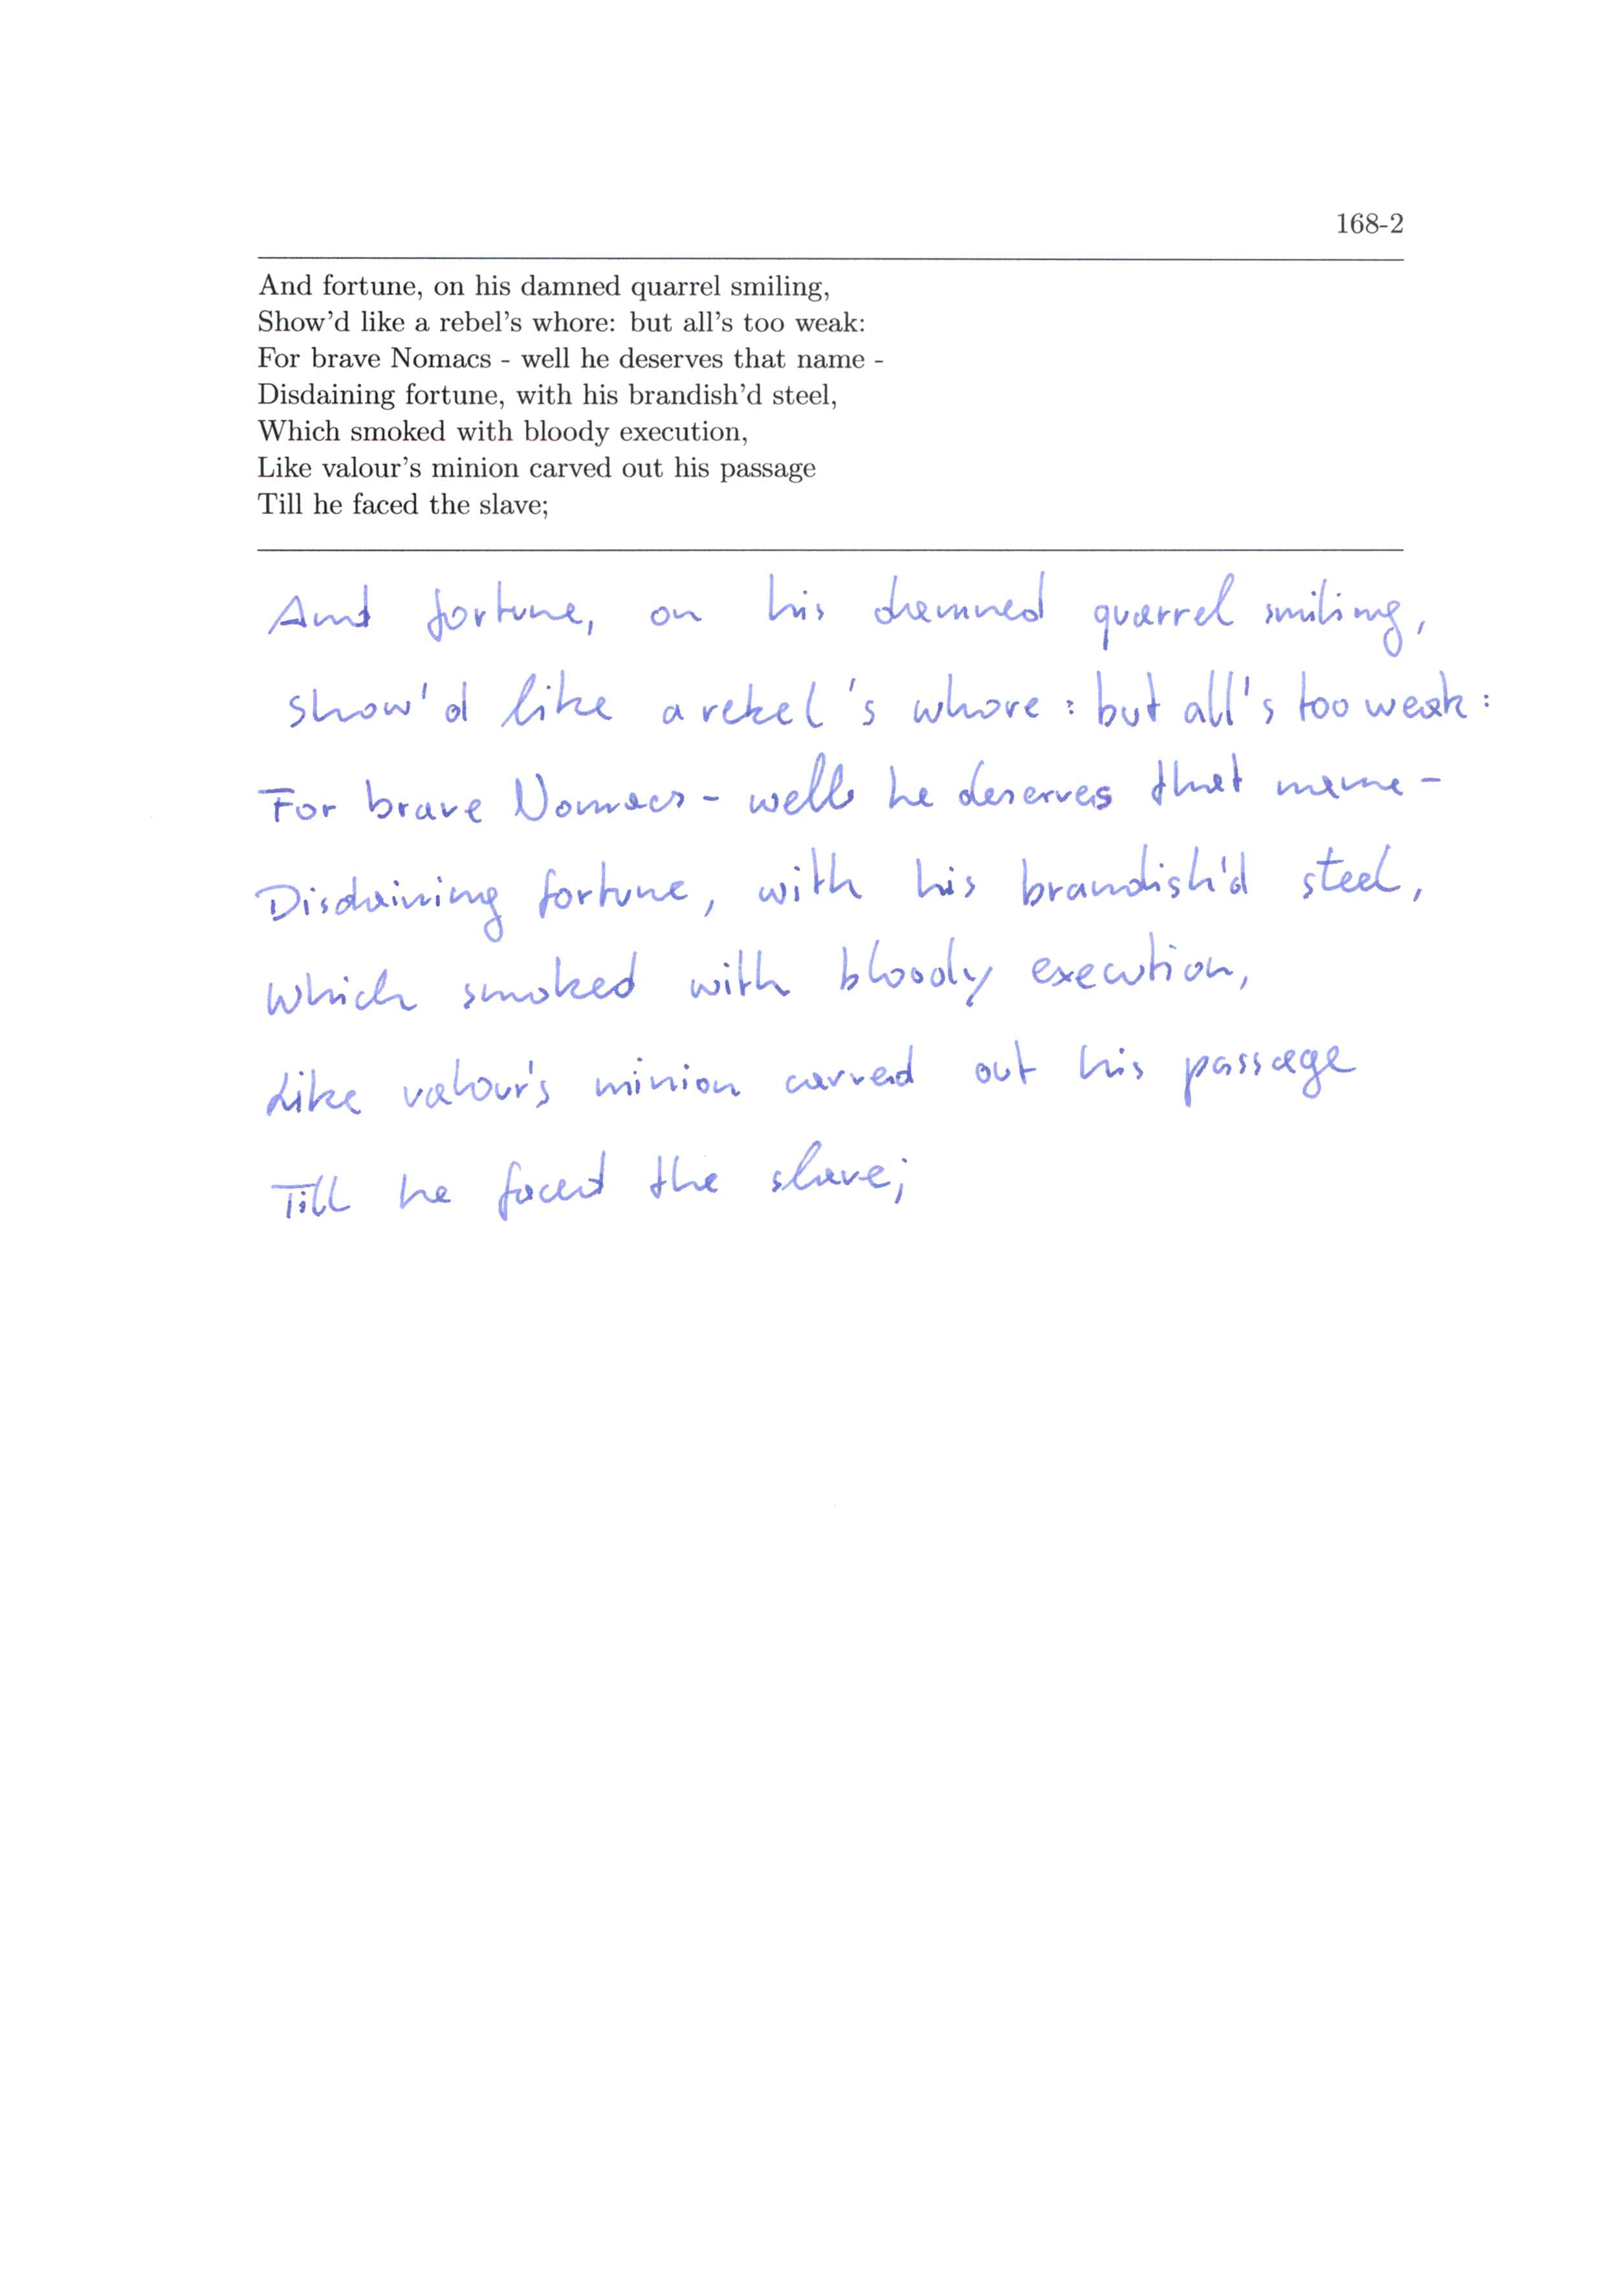 168-2
And fortune, on his damned quarrel smiling,
Show'd like a rebel's whore: but all's too weak:
For brave Nomacs - well he deserves that name -
Disdaining fortune, with his brandish'd steel,
Which smoked with bloody execution,
Like valour's minion carved out his passage
Till he faced the slave;
And fortune, on his damned quarrel smiling,
show'd like a rebel's whore: but all's too weak:
For brave Nomacs - well he deserves that name -
Disdaining fortune, with his brandish'd steel,
which smoked with bloody execution,
Like valour's minion carved out his passage
Till he faced the slave;